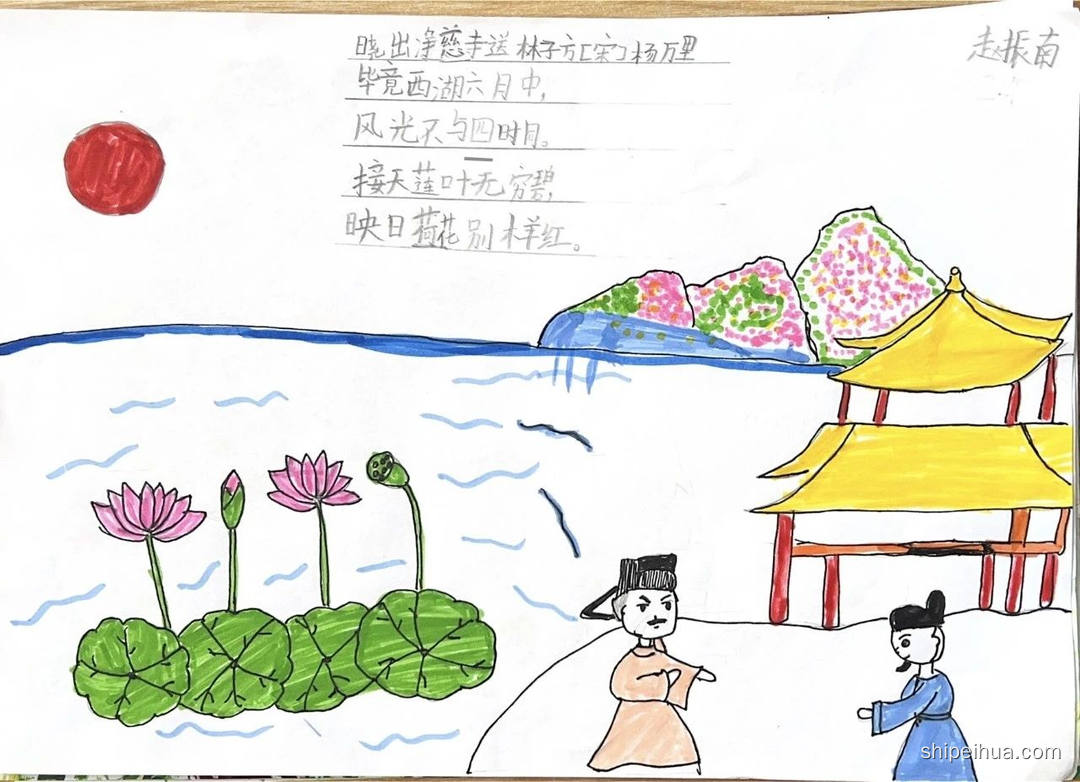 晓出净慈寺送林子方[宋]杨万里
赵振南
毕竟西湖六月中,
风光不与四时同。
接天莲叶无穷碧,
映日荷花别样红。
shipeihua.com